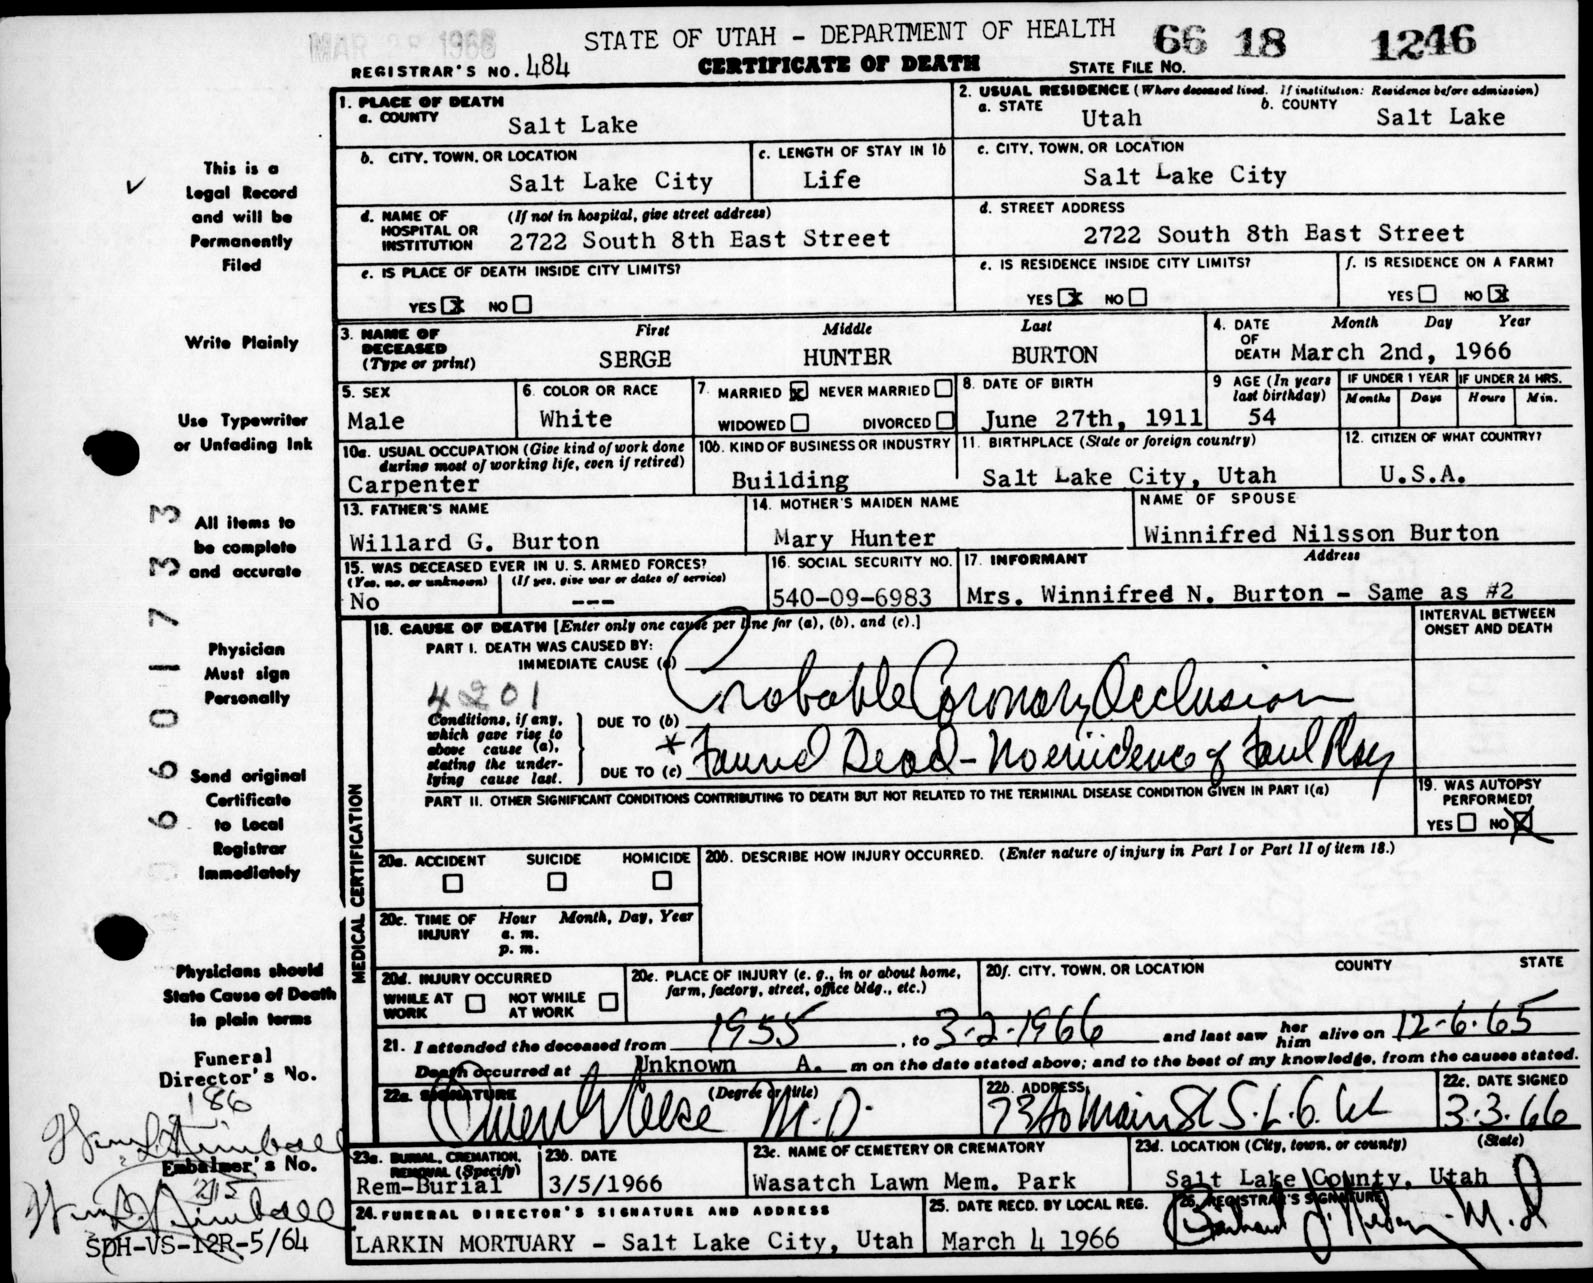 MAR 1966
STATE OF UTAH - DEPARTMENT OF HEALTH
66 18 1246
REGISTRAR'S NO. 484
CERTIFICATE OF DEATH
STATE FILE NO.
1. PLACE OF DEATH
a. COUNTY
Salt Lake
2. USUAL RESIDENCE (Where deceased lived. If institution: Residence before admission)
a. STATE
Utah
b. COUNTY
Salt Lake
b. CITY, TOWN, OR LOCATION
Salt Lake City
c. LENGTH OF STAY IN 1b
Life
c. CITY, TOWN, OR LOCATION
Salt Lake City
d. NAME OF HOSPITAL OR INSTITUTION
(If not in hospital, give street address)
2722 South 8th East Street
d. STREET ADDRESS
2722 South 8th East Street
e. IS PLACE OF DEATH INSIDE CITY LIMITS?
YES X NO
e. IS RESIDENCE INSIDE CITY LIMITS?
YES X NO
f. IS RESIDENCE ON A FARM?
YES NO X
3. NAME OF DECEASED (Type or print)
First Middle Last
SERGE HUNTER BURTON
4. DATE OF DEATH
Month Day Year
March 2nd, 1966
5. SEX
Male
6. COLOR OR RACE
White
7. MARRIED X NEVER MARRIED
WIDOWED DIVORCED
8. DATE OF BIRTH
June 27th, 1911
9 AGE (In years last birthday)
54
IF UNDER 1 YEAR
Months Days
IF UNDER 24 HRS.
Hours Min.
10a. USUAL OCCUPATION (Give kind of work done during most of working life, even if retired)
Carpenter
10b. KIND OF BUSINESS OR INDUSTRY
Building
11. BIRTHPLACE (State or foreign country)
Salt Lake City, Utah
12. CITIZEN OF WHAT COUNTRY?
U.S.A.
13. FATHER'S NAME
Willard G. Burton
14. MOTHER'S MAIDEN NAME
Mary Hunter
NAME OF SPOUSE
Winnifred Nilsson Burton
15. WAS DECEASED EVER IN U. S. ARMED FORCES?
(Yes, no, or unknown) (If yes, give war or dates of service)
No ---
16. SOCIAL SECURITY NO.
540-09-6983
17. INFORMANT Address
Mrs. Winnifred N. Burton - Same as #2
18. CAUSE OF DEATH [Enter only one cause per line for (a), (b), and (c).]
INTERVAL BETWEEN ONSET AND DEATH
PART I. DEATH WAS CAUSED BY:
IMMEDIATE CAUSE (a)
Probable Coronary Occlusion
4201
Conditions, if any, which gave rise to above cause (a), stating the underlying cause last.
DUE TO (b)
* Found Dead - No evidence of Foul Play
DUE TO (c)
PART II. OTHER SIGNIFICANT CONDITIONS CONTRIBUTING TO DEATH BUT NOT RELATED TO THE TERMINAL DISEASE CONDITION GIVEN IN PART I(a)
19. WAS AUTOPSY PERFORMED?
YES NO X
MEDICAL CERTIFICATION
20a. ACCIDENT SUICIDE HOMICIDE
20b. DESCRIBE HOW INJURY OCCURRED. (Enter nature of injury in Part I or Part II of item 18.)
20c. TIME OF INJURY
Hour Month, Day, Year
a. m.
p. m.
20d. INJURY OCCURRED
WHILE AT WORK NOT WHILE AT WORK
20e. PLACE OF INJURY (e. g., in or about home, farm, factory, street, office bldg., etc.)
20f. CITY, TOWN, OR LOCATION COUNTY STATE
21. I attended the deceased from 1955, to 3-2-1966 and last saw her him alive on 12-6-65
Death occurred at Unknown A. m on the date stated above; and to the best of my knowledge, from the causes stated.
22a. SIGNATURE (Degree or title)
Owen G Reese M.D.
22b. ADDRESS
73 So Main St S.L.C. Ut
22c. DATE SIGNED
3.3.66
23a. BURIAL, CREMATION, REMOVAL (Specify)
Rem-Burial
23b. DATE
3/5/1966
23c. NAME OF CEMETERY OR CREMATORY
Wasatch Lawn Mem. Park
23d. LOCATION (City, town, or county) (State)
Salt Lake County, Utah
24. FUNERAL DIRECTOR'S SIGNATURE AND ADDRESS
LARKIN MORTUARY - Salt Lake City, Utah
25. DATE RECD. BY LOCAL REG.
March 4 1966
26. REGISTRAR'S SIGNATURE
This is a
Legal Record
and will be
Permanently
Filed
Write Plainly
Use Typewriter
or Unfading Ink
All items to
be complete
and accurate
Physician
Must sign
Personally
Send original
Certificate
to Local
Registrar
Immediately
Physicians should
State Cause of Death
in plain terms
Funeral
Director's No.
186
Embalmer's No.
215
SDH-VS-12R-5/64
6601733